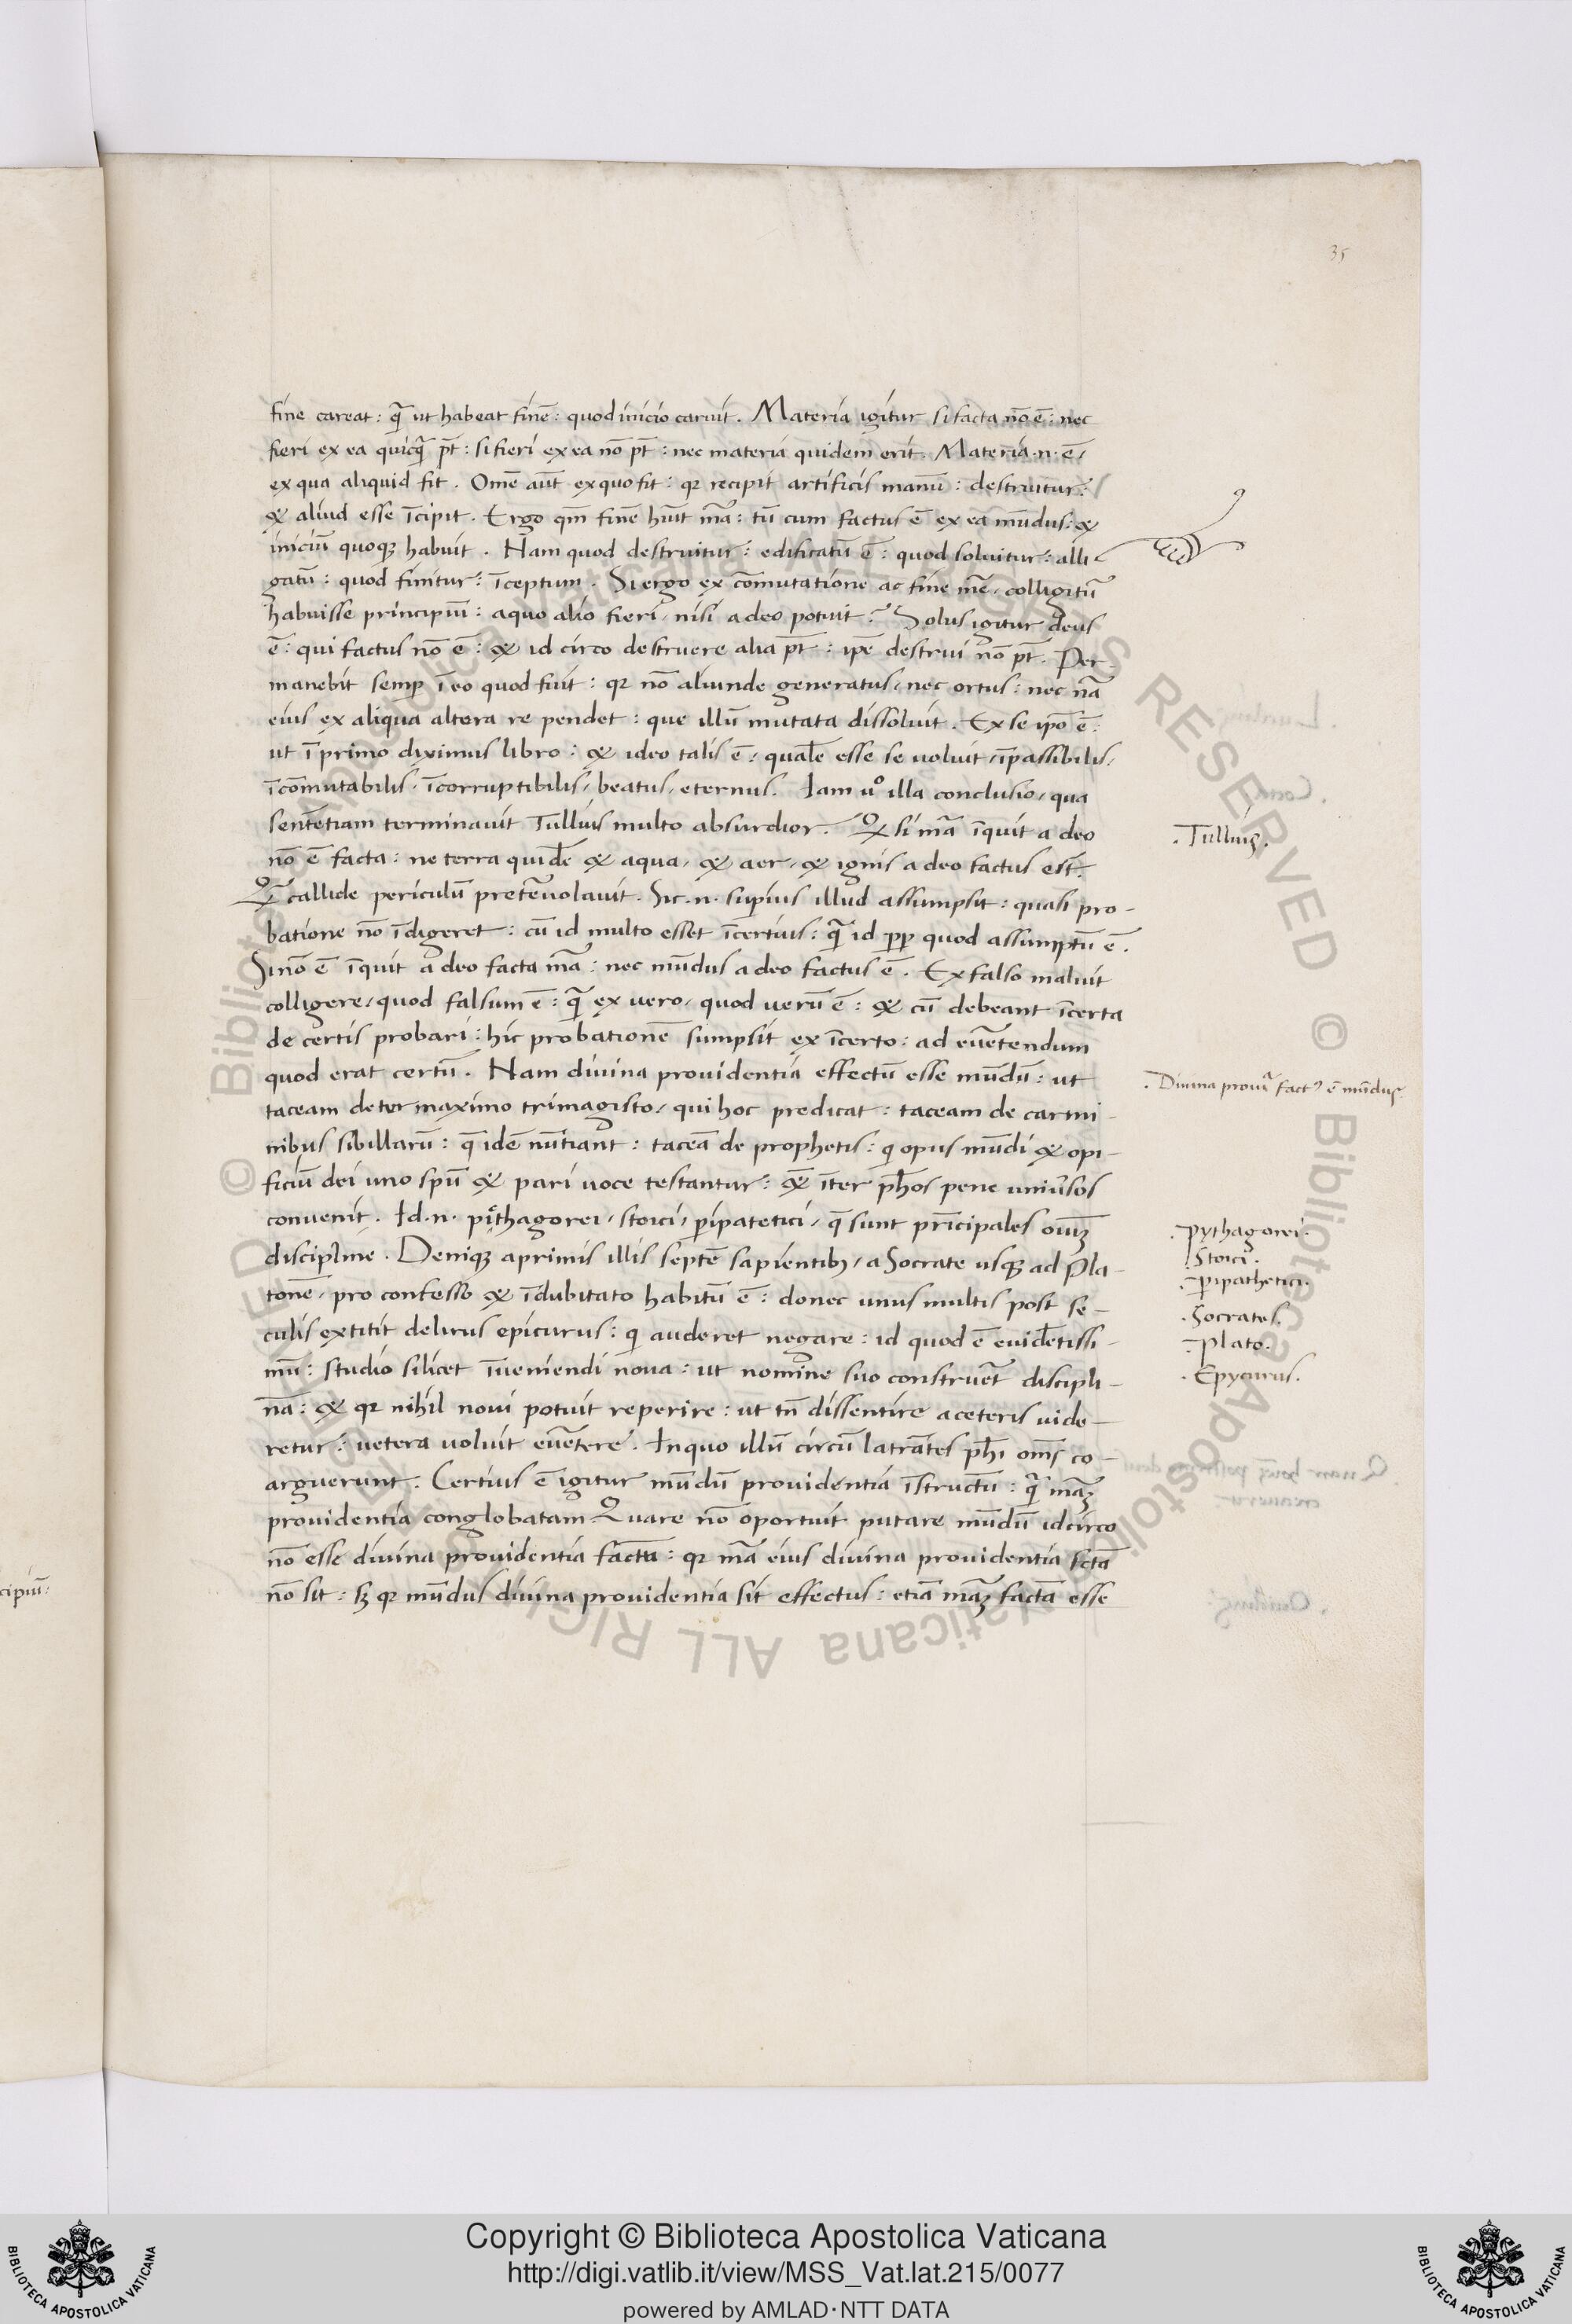 35
fine careat : qȃ ut habeat finē : quod inicio caruit . Materia igitur si facta nō ē : nec
fieri ex ea quicq̄ pt̄ : si fieri ex ea nō pt̄ : nec materia quidem erit . Materia .n. ē /
ex qua aliquid fit . Omē aūt ex quo fit : qr recipit artificis manū : destruitur :
& aliud esse īcipit . Ergo qm̄ finē huīt mā : tū cum factus ē ex ea mūdus : &
iniciū quoqȝ habuit . Nam quod destruitur : edificatū ē : quod soluitur : alli
gatū : quod finitur : īceptum . Si ergo ex cōmutatione ac fine mē / colligitū
habuisse principiū : aquo alio fieri / nisi a deo potuit ? Solus igitur deus
ē : qui factus nō ē : & id circo destruere alia pt̄ : ipē destrui nō pt̄ . Per-
manebit semp̄ ī eo quod fuit : qr nō aliunde generatus / nec ortus : nec nā
eius ex aliqua altera re pendet : que illū mutata dissoluit . Ex se ipō ē :
ut ī primo diximus libro : & ideo talis ē / qualē esse se uoluit / īpassibilis /
īcōmutabilis / īcorruptibilis / beatus / eternus . Iam uº illa conclusio / qua
sentētiam terminauit Tullius multo absurdior . Q si mā īquit a deo
nō ē facta : ne terra quidē & aqua / & aer / & ignis a deo factus est .
Q̄ callide periculū pretēuolauit . Sic .n. supius illud assumpsit : quasi pro-
batione nō īdigeret : cū id multo esset īcertius : q̄ id pp quod assumptū ē .
Si nō ē īquit a deo facta mā : nec mūdus a deo factus ē . Ex falso maluit
colligere / quod falsum ē : q̄ ex vero / quod verū ē : & cū debeant īcerta
de certis probari : hic probationē sumpsit ex īcerto : ad euētendum
quod erat certū . Nam diuina prouidentia effectū esse mūdū : ut
taceam de ter maximo trimagisto / qui hoc predicat : taceam de carmi-
nibus sibillarū : q̄ idē nūtiant : taceā de prophetis : qi opus mūdi & opi-
ficiū dei uno spū & pari uoce testantur : & īter phōs pene uniūsos
conuenit . Id .n. pithagorei / stoici / pipatetici / q̄ sunt prīcipales oiuȝ
discipline . Deniqȝ aprimis illis septē sapientibȝ / a Socrate usqȝ ad Pla-
tonē / pro confesso & īdubitato habitū ē : donec unus multis post se-
culis extitit delirus epicurus : qi auderet negare : id quod ē euidētissi-
mū : studio silicet īueniendi noua : ut nomine suo construēt discipli-
nā : & qr nihil noui potuit reperire : ut tn̄ dissentire a ceteris uide-
retur : uetera uoluit euētere . In quo illū circū latrātes phi oms̄ co-
arguerunt . Certius ē igitur mūdū prouidentia īstructū : q̄ māȝ
prouidentia conglobatam . Quare nō oportuit putare mūdū idcirco
nō esse diuina prouidentia factā : qr mā eius diuina prouidentia sctā
nō sit : sȝ qr mūdus diuina prouidentia sit effectus : etiā māȝ factā esse
. Tullius .
. Diuina prouiā fact9 ē mūdus
. Pythagorei .
. Stoici .
. pipathetici .
. Socrates .
. Plato .
. Epycurus .
cipiū :
© Biblioteca Apostolica Vaticana ALL RIGHTS RESERVED
© Biblioteca Apostolica Vaticana ALL RIGHTS RESERVED
BIBLIOTECA APOSTOLICA VATICANA
Copyright © Biblioteca Apostolica Vaticana
http://digi.vatlib.it/view/MSS_Vat.lat.215/0077
powered by AMLAD·NTT DATA
BIBLIOTECA APOSTOLICA VATICANA